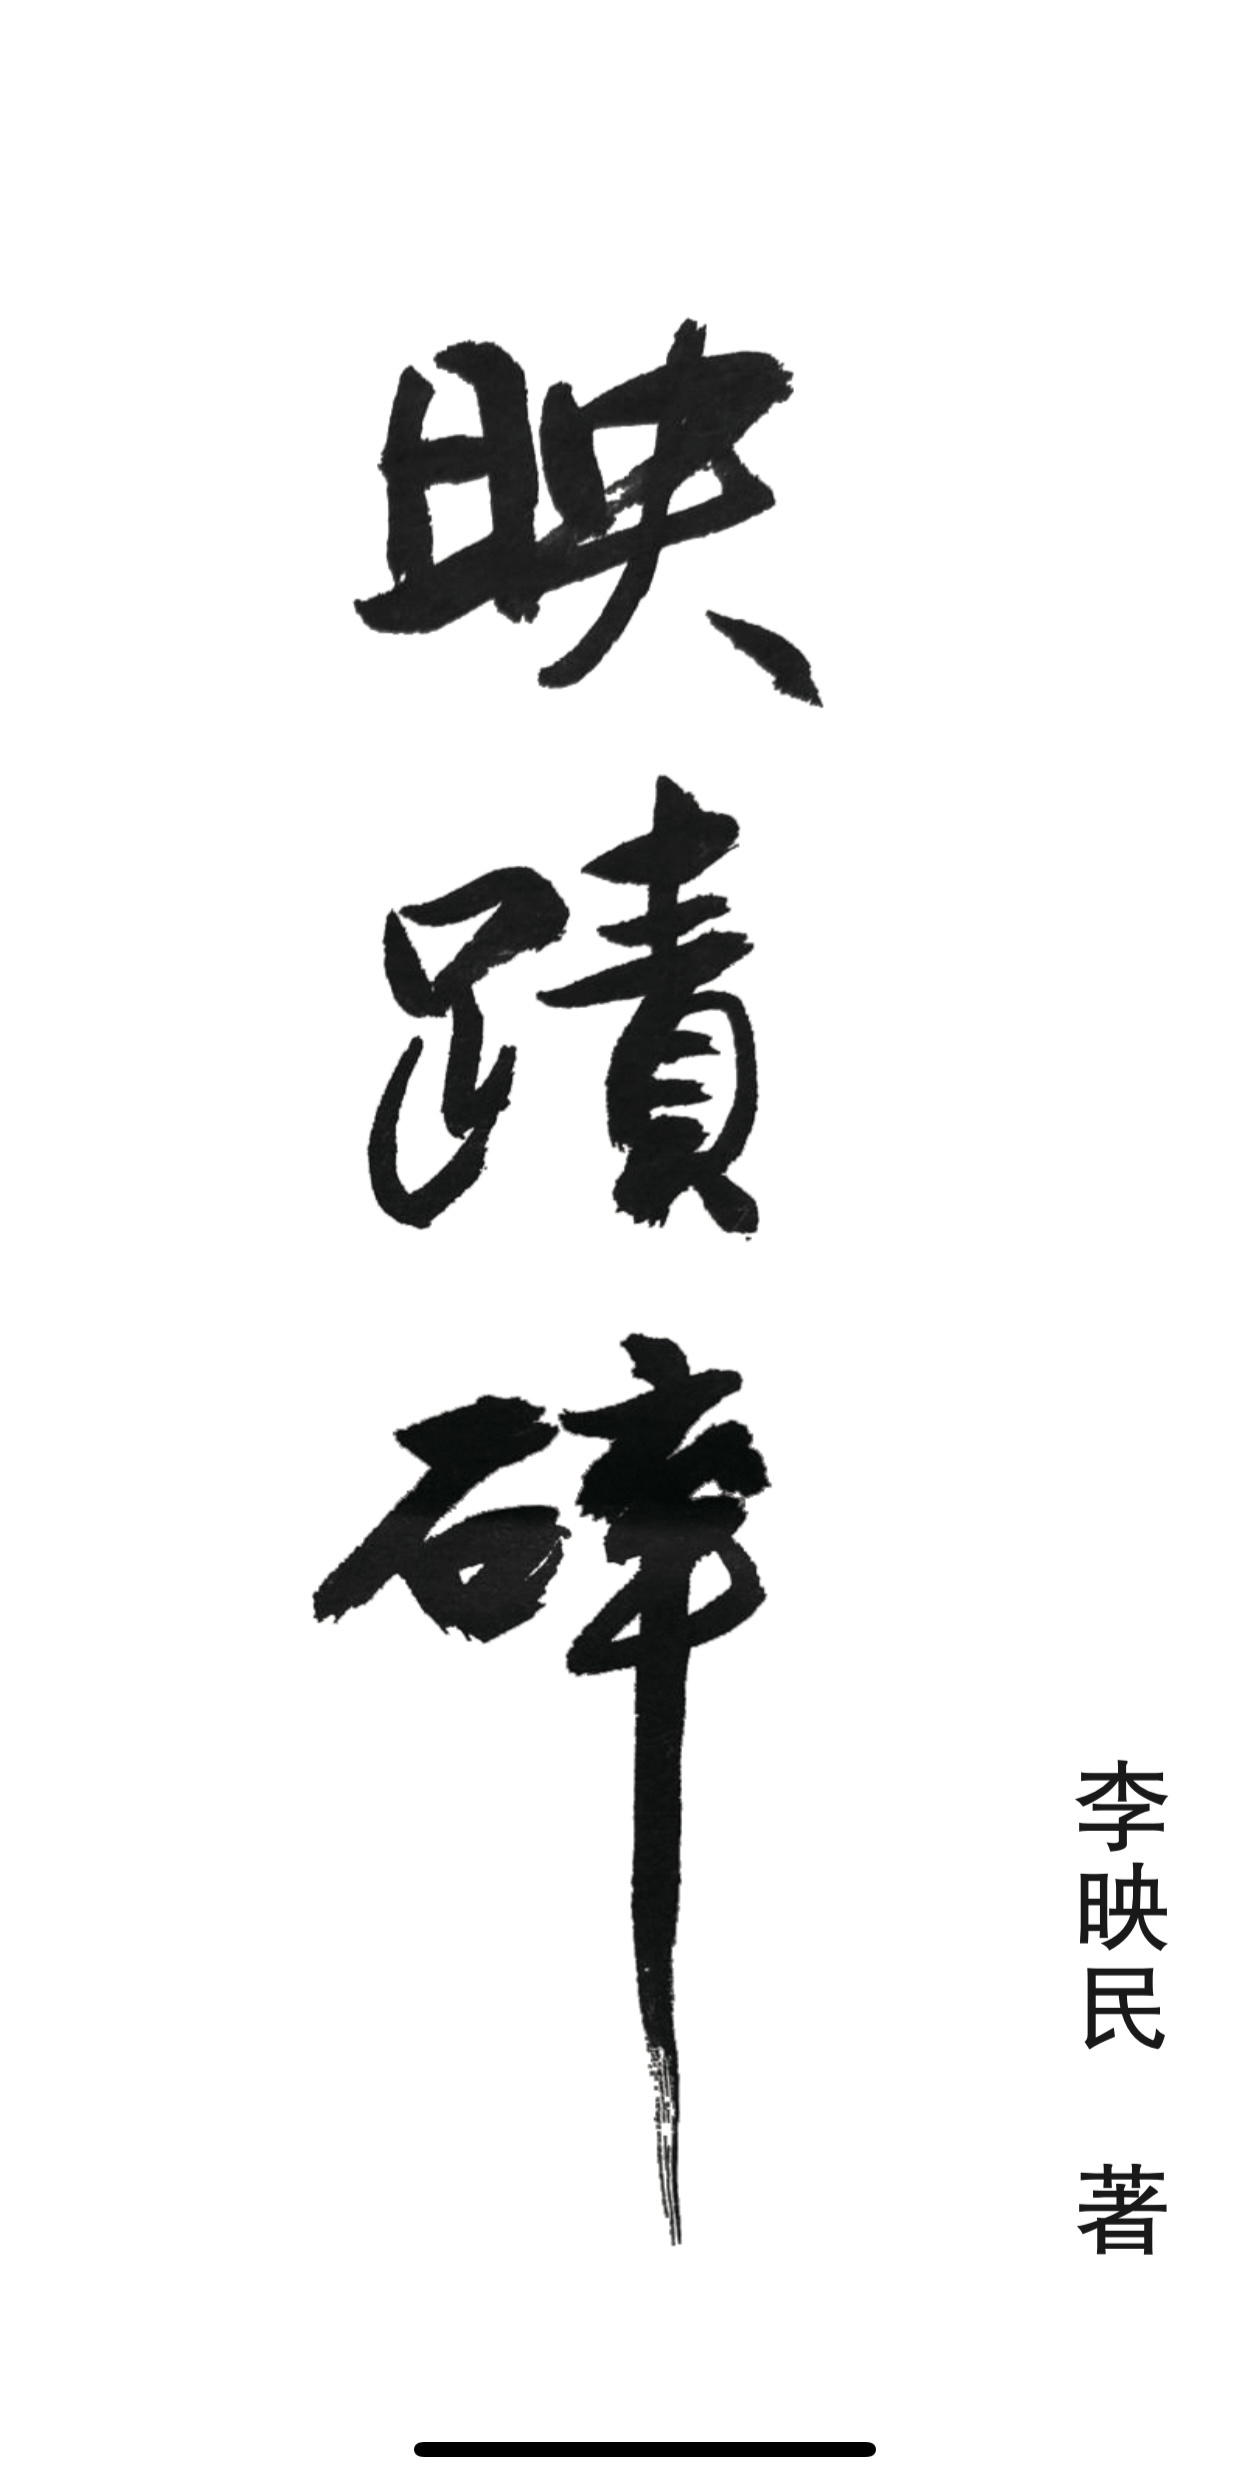 映蹟碎
李映民 著